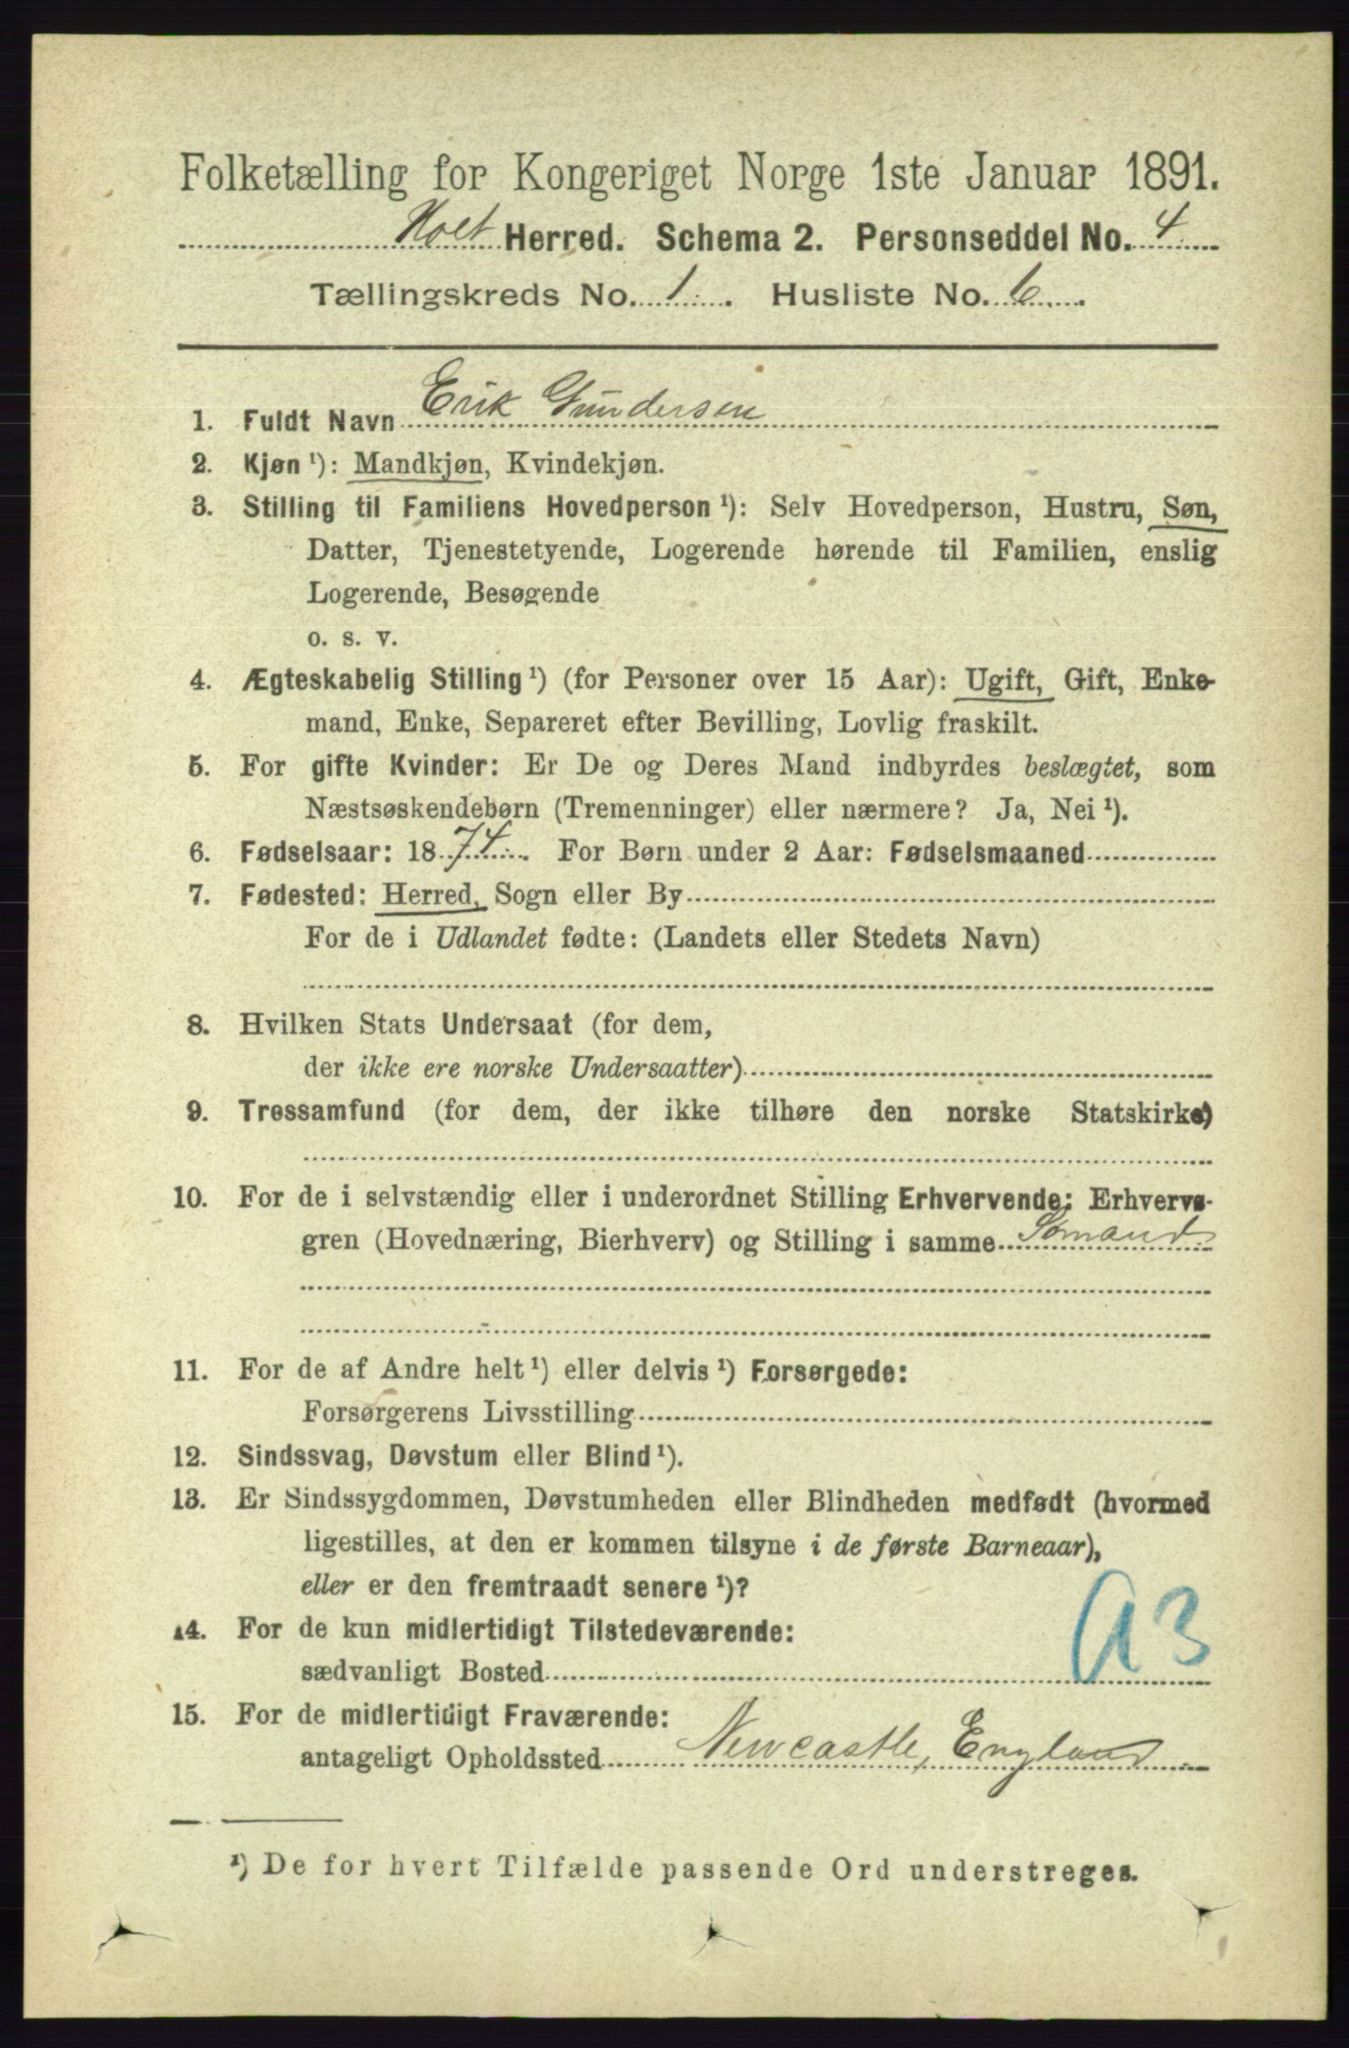 Folketælling for Kongeriget Norge 1ste Januar 1891.
Holt Herred. Schema 2. Personseddel No. 4
Tællingskreds No. 1. Husliste No. 6.
1. Fuldt Navn Erik Gundersen
2. Kjøn ¹): Mandkjøn, Kvindekjøn.
3. Stilling til Familiens Hovedperson ¹): Selv Hovedperson, Hustru, Søn,
Datter, Tjenestetyende, Logerende hørende til Familien, enslig
Logerende, Besøgende
o. s. v.
4. Ægteskabelig Stilling ¹) (for Personer over 15 Aar): Ugift, Gift, Enke-
mand, Enke, Separeret efter Bevilling, Lovlig fraskilt.
5. For gifte Kvinder: Er De og Deres Mand indbyrdes beslægtet, som
Næstsøskendebørn (Tremenninger) eller nærmere? Ja, Nei ¹).
6. Fødselsaar: 1874. For Børn under 2 Aar: Fødselsmaaned
7. Fødested: Herred, Sogn eller By
For de i Udlandet fødte: (Landets eller Stedets Navn)
8. Hvilken Stats Undersaat (for dem,
der ikke ere norske Undersaatter)
9. Trossamfund (for dem, der ikke tilhøre den norske Statskirke)
10. For de i selvstændig eller i underordnet Stilling Erhvervende: Erhvervs-
gren (Hovednæring, Bierhverv) og Stilling i samme Sømand
11. For de af Andre helt ¹) eller delvis ¹) Forsørgede:
Forsørgerens Livsstilling
12. Sindssvag, Døvstum eller Blind ¹).
13. Er Sindssygdommen, Døvstumheden eller Blindheden medfødt (hvormed
ligestilles, at den er kommen tilsyne i de første Barneaar),
eller er den fremtraadt senere ¹)?
14. For de kun midlertidigt Tilstedeværende:
sædvanligt Bosted
A3
15. For de midlertidigt Fraværende:
antageligt Opholdssted Newcastle, England
¹) De for hvert Tilfælde passende Ord understreges.